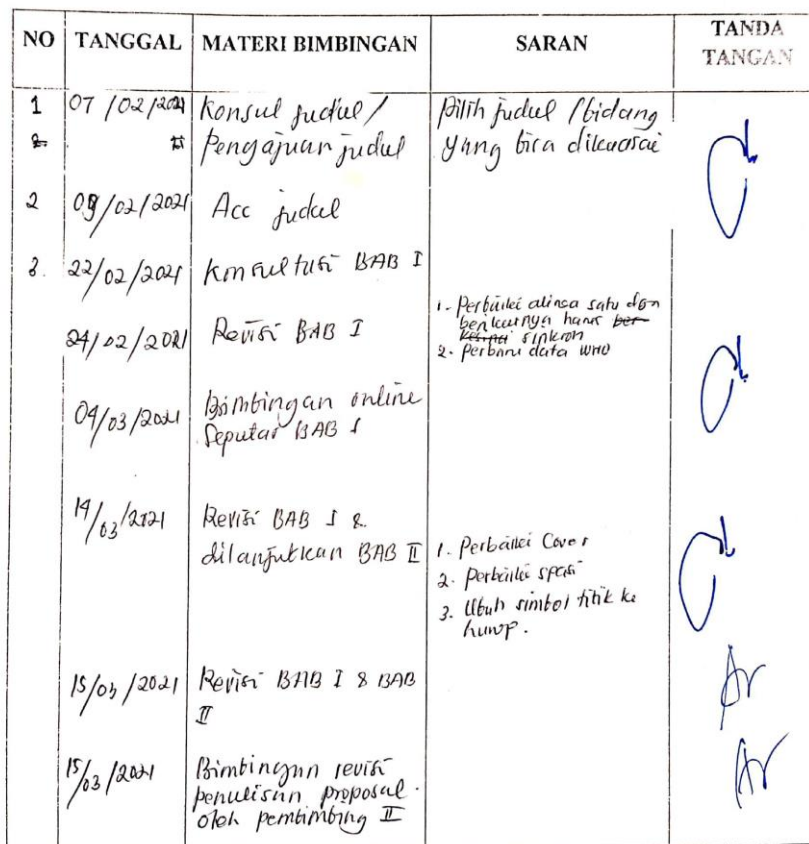 NO TANGGAL MATERI BIMBINGAN SARAN TANDA TANGAN
1 07/02/2021 Konsul judul/ pilih judul /bidang
Pengajuan judul yang bisa dikuasai
2 09/02/2021 Acc judul
3. 22/02/2021 Konsultasi BAB I
1. Perbaiki alinea satu dan
berikutnya harus sinkron
24/02/2021 Revisi BAB I 2. Perbarui data WHO
04/03/2021 Bimbingan online
Seputar BAB I
14/03/2021 Revisi BAB I &
dilanjutkan BAB II 1. Perbaiki Cover
2. Perbaiki spasi
3. Ubah simbol titik ke
hurup.
15/03/2021 Revisi BAB I & BAB
II
15/03/2021 Bimbingan revisi
penulisan proposal
oleh pembimbing II